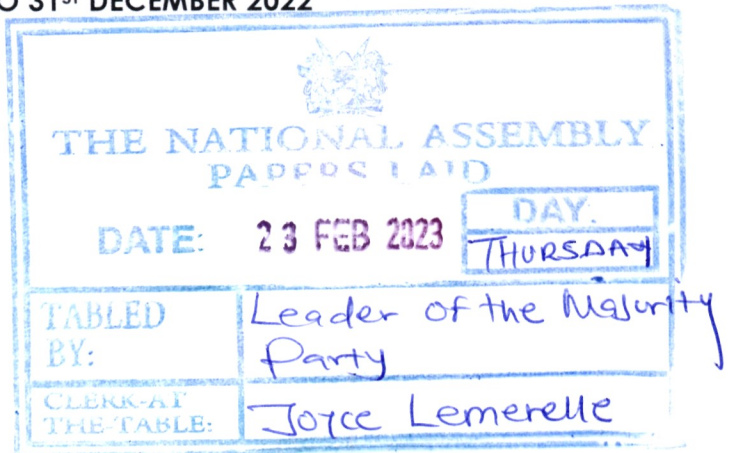 O 31ST DECEMBER 2022
THE NATIONAL ASSEMBLY
PAPERS LAID
DATE: 23 FEB 2023
DAY.
THURSDAY
TABLED BY:
Leader of the Majority Party
CLERK-AT THE-TABLE:
Joyce Lemerelle